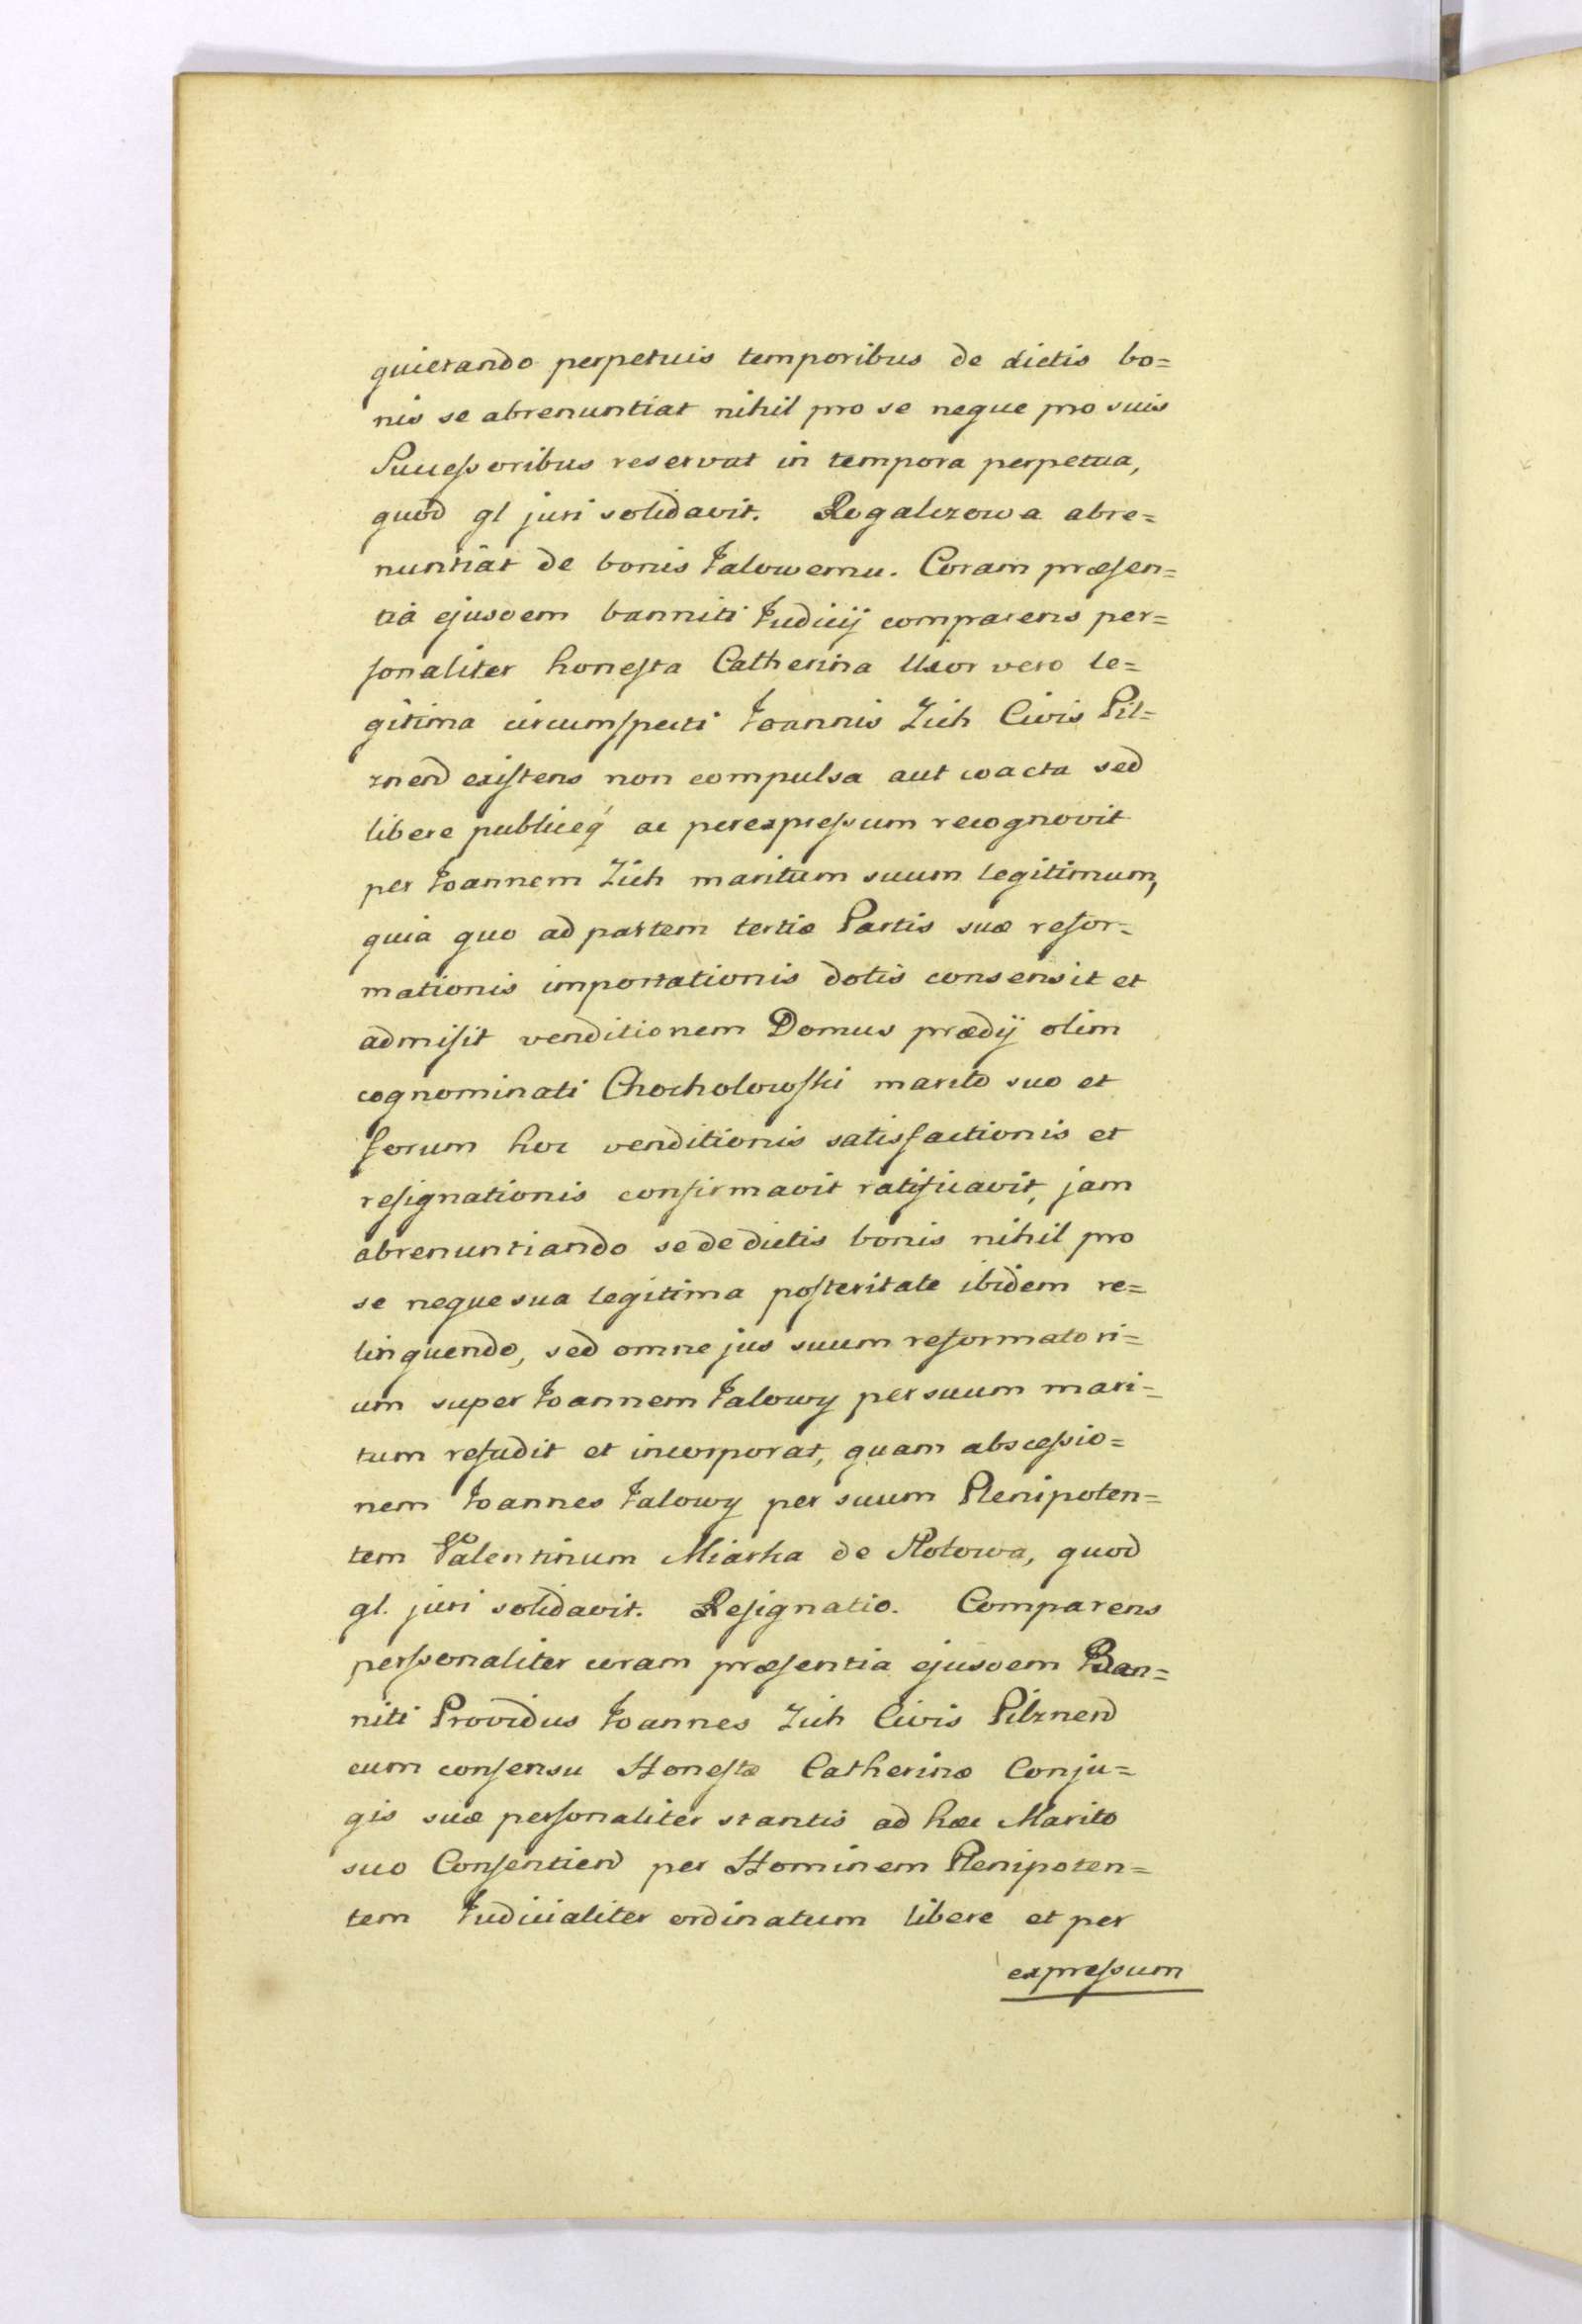 quietando perpetuis temporibus de dictis bo=
nis se abrenuntiat nihil pro se neque pro suis
Successoribus reservat in tempora perpetua,
quod gl juri solidavit. Rogalczowa abre=
nuntiat de bonis Jalowemu. Coram præsen=
tia ejusdem banniti Judicij comparens per=
sonaliter honesta Catherina Uxor vero le=
gitima circumspecti Joannis Zich Civis Pil=
znen existens non compulsa aut coacta sed
libere publiceq ac perexpressum recognovit
per Joannem Zich maritum suum legitimum,
quia quo ad partem tertiæ Partis suæ refor=
mationis importationis dotis consensit et
admisit venditionem Domus prædij olim
cognominati Chocholowski marito suo et
forum hoc venditionis satisfactionis et
resignationis confirmavit ratificavit, jam
abrenuntiando se de dictis bonis nihil pro
se neque sua legitima posteritate ibidem re=
linquendo, sed omne jus suum reformatori=
um super Joannem Jalowy per suum mari=
tum refudit et incorporat, quam abscessio=
nem Joannes Jalowy per suum Plenipoten=
tem Valentinum Miarka de Motowa, quod
gl. juri solidavit. Resignatio. Comparens
personaliter coram præsentia ejusdem Ban=
niti Providus Joannes Zich Civis Pilznen
cum consensu Honestæ Catherinæ Conju=
gis suæ personaliter stantis ad hæc Marito
suo Consentien per Hominem Plenipoten=
tem Judicialiter ordinatum libere et per
expressum